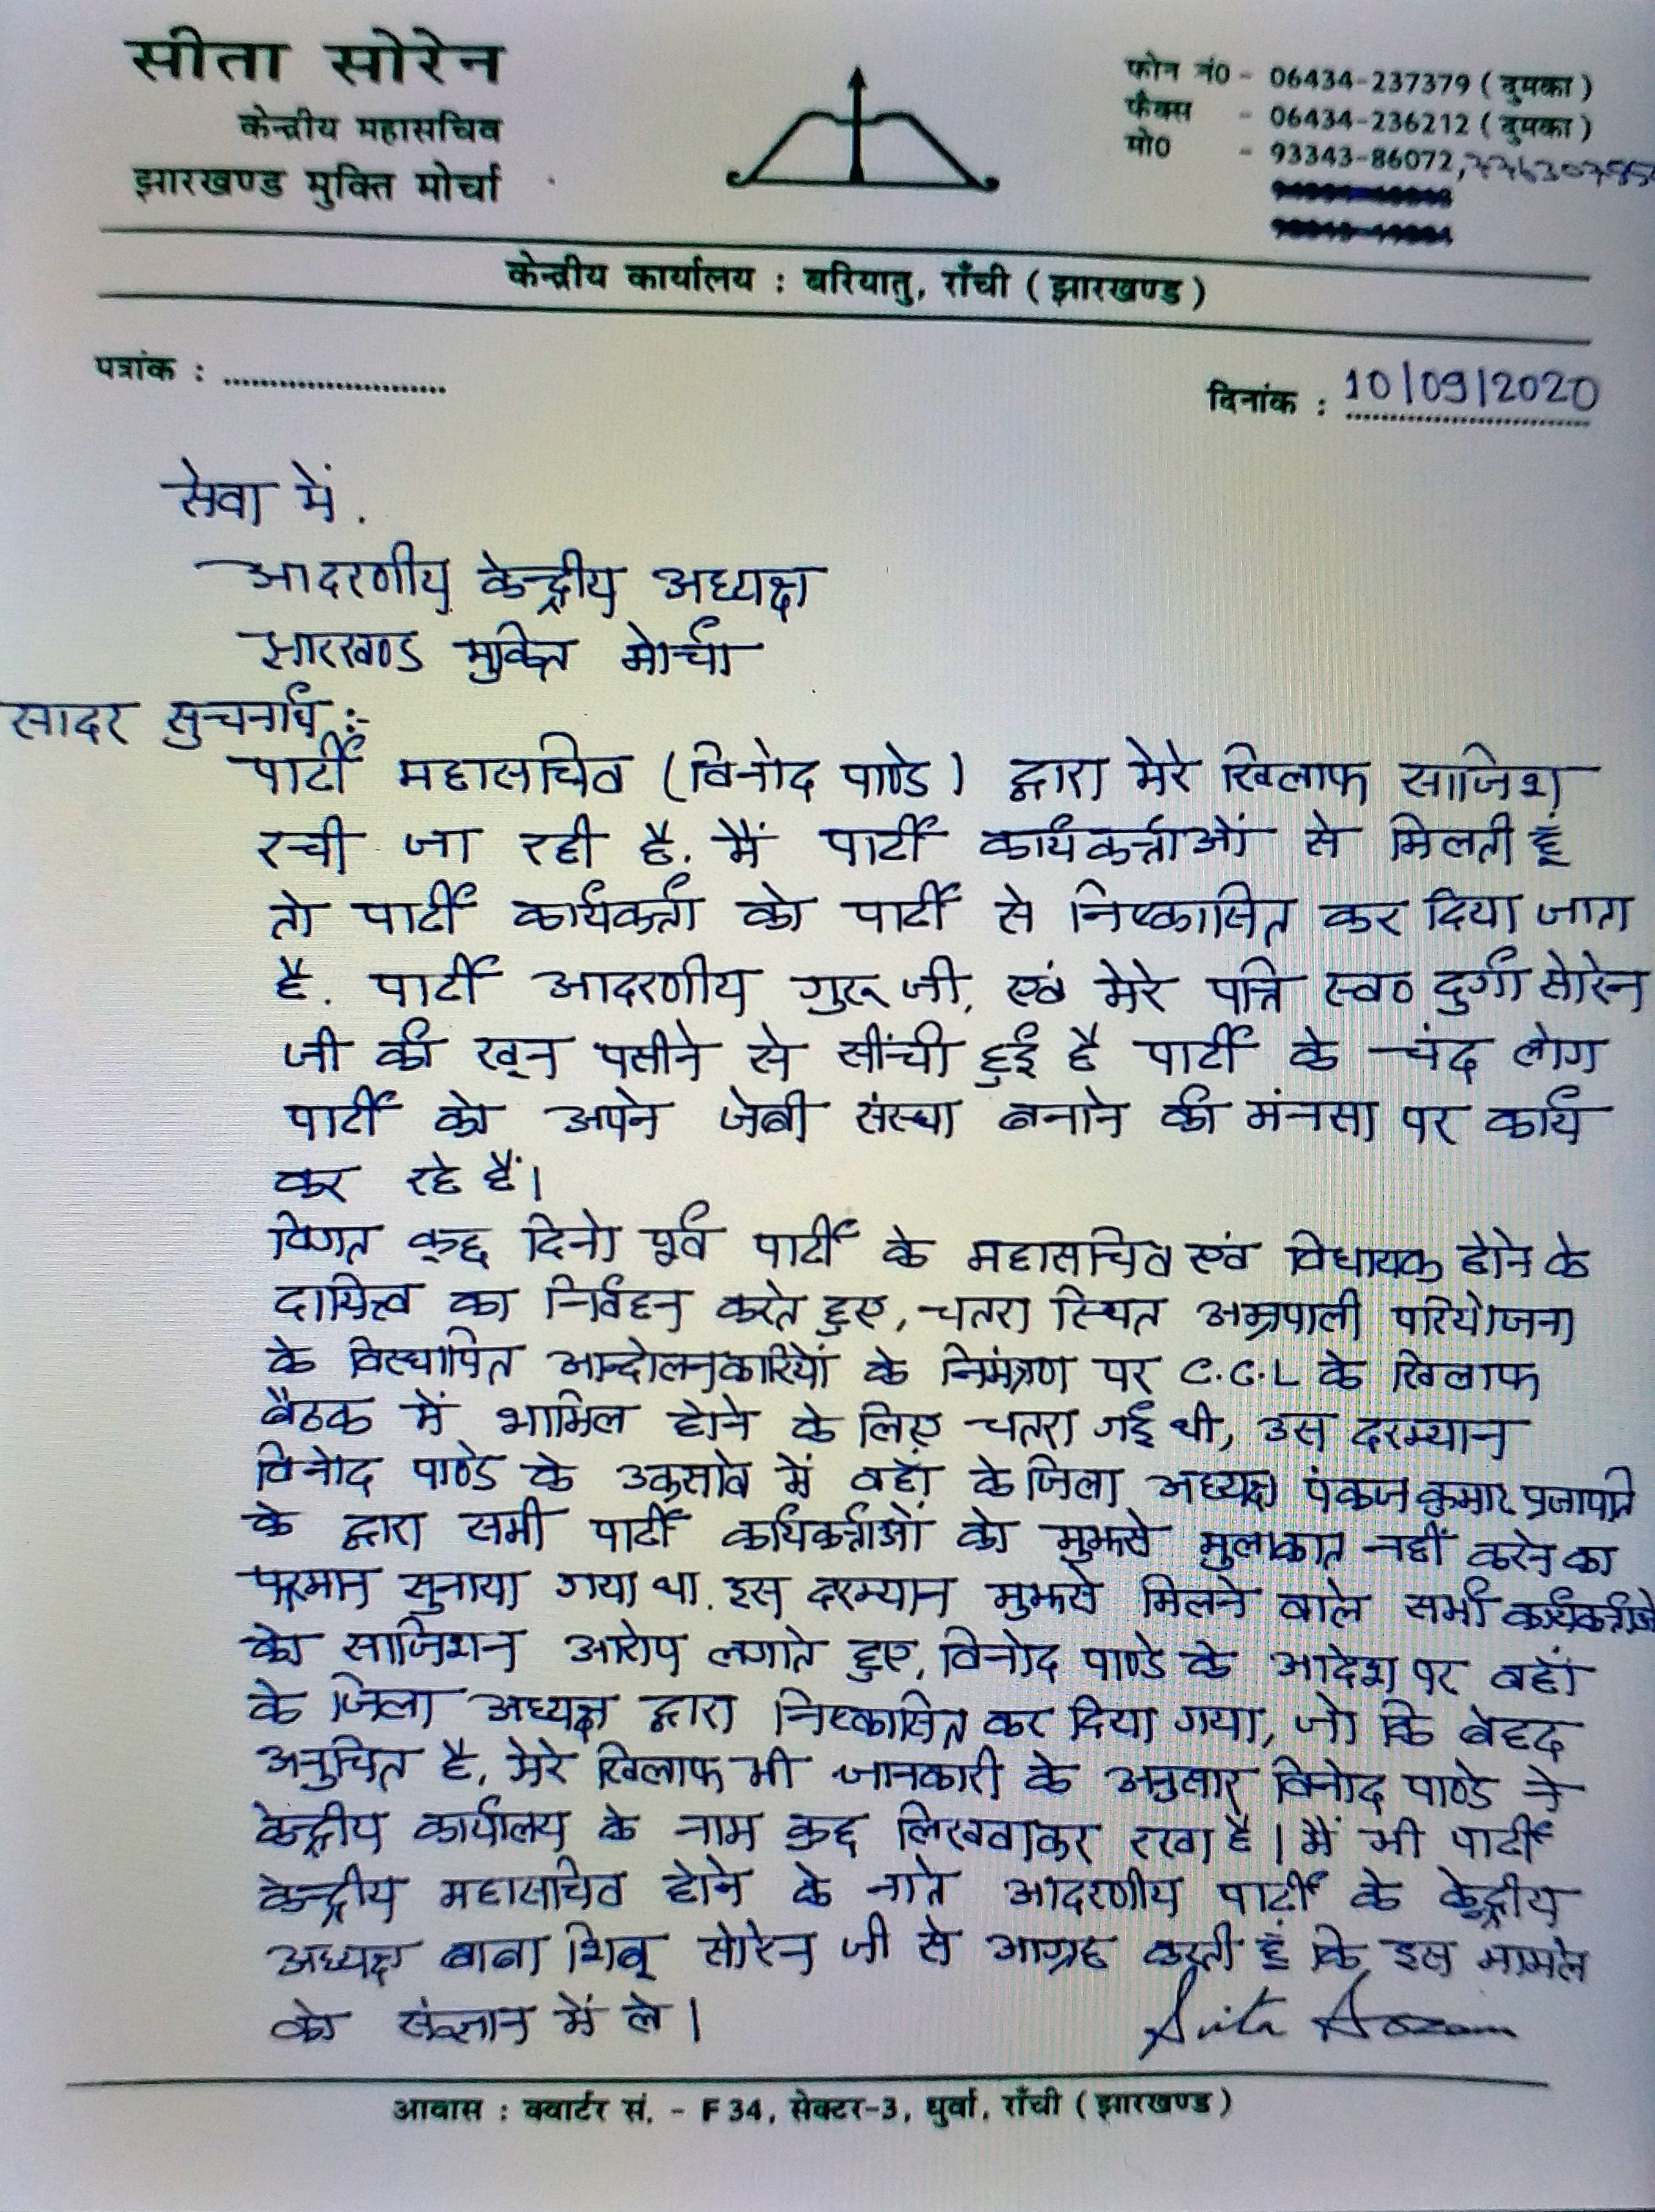 सीता सोरेन
केन्द्रीय महासचिव
झारखण्ड मुक्ति मोर्चा
फोन नं0 - 06434-237379 ( दुमका )
फैक्स - 06434-236212 ( दुमका )
मो0 - 93343-86072,
केन्द्रीय कार्यालय : बरियातु, राँची ( झारखण्ड )
पत्रांक : ........................
दिनांक : 10/09/2020
सेवा में.
आदरणीय केन्द्रीय अध्यक्ष
झारखण्ड मुक्ति मोर्चा
सादर सुचनार्थ :-
पार्टी महासचिव (विनोद पाण्डे) द्वारा मेरे खिलाफ साजिश
रची जा रही है. मैं पार्टी कार्यकर्त्ताओं से मिलती हूँ
तो पार्टी कार्यकर्त्ता को पार्टी से निष्कासित कर दिया जाता
है. पार्टी आदरणीय गुरू जी, एवं मेरे पति स्व० दुर्गा सोरेन
जी की खून पसीने से सींची हुई है पार्टी के चंद लोग
पार्टी को अपने जेबी संस्था बनाने की मंनसा पर कार्य
कर रहे हैं।
विगत कुछ दिनो पूर्व पार्टी के महासचिव एवं विधायक होने के
दायित्व का निर्वहन करते हुए, चतरा स्थित अम्रपाली परियोजना
के विस्थापित आन्दोलनकारियों के निमंत्रण पर C.C.L के खिलाफ
बैठक में शामिल होने के लिए चतरा गई थी, उस दरम्यान
विनोद पाण्डे के उकसावे में वहाँ के जिला अध्यक्ष पंकज कुमार प्रजापति
के द्वारा सभी पार्टी कार्यकर्त्ताओं को मुझसे मुलाकात नहीं करने का
फरमान सुनाया गया था. इस दरम्यान मुझसे मिलने वाले सभी कार्यकर्त्ताओं
को साजिशन आरोप लगाते हुए, विनोद पाण्डे के आदेश पर वहाँ
के जिला अध्यक्ष द्वारा निष्कासित कर दिया गया, जो कि बेहद
अनुचित है, मेरे खिलाफ भी जानकारी के अनुसार विनोद पाण्डे ने
केन्द्रीय कार्यालय के नाम कुछ लिखवाकर रखा है। मैं भी पार्टी
केन्द्रीय महासचिव होने के नाते आदरणीय पार्टी के केद्रीय
अध्यक्ष बाबा शिबू सोरेन जी से आग्रह करती हूँ कि इस मामले
को संज्ञान में ले।
Sita Soren
आवास : क्वार्टर सं. - F 34, सेक्टर-3, धुर्वा, राँची ( झारखण्ड )